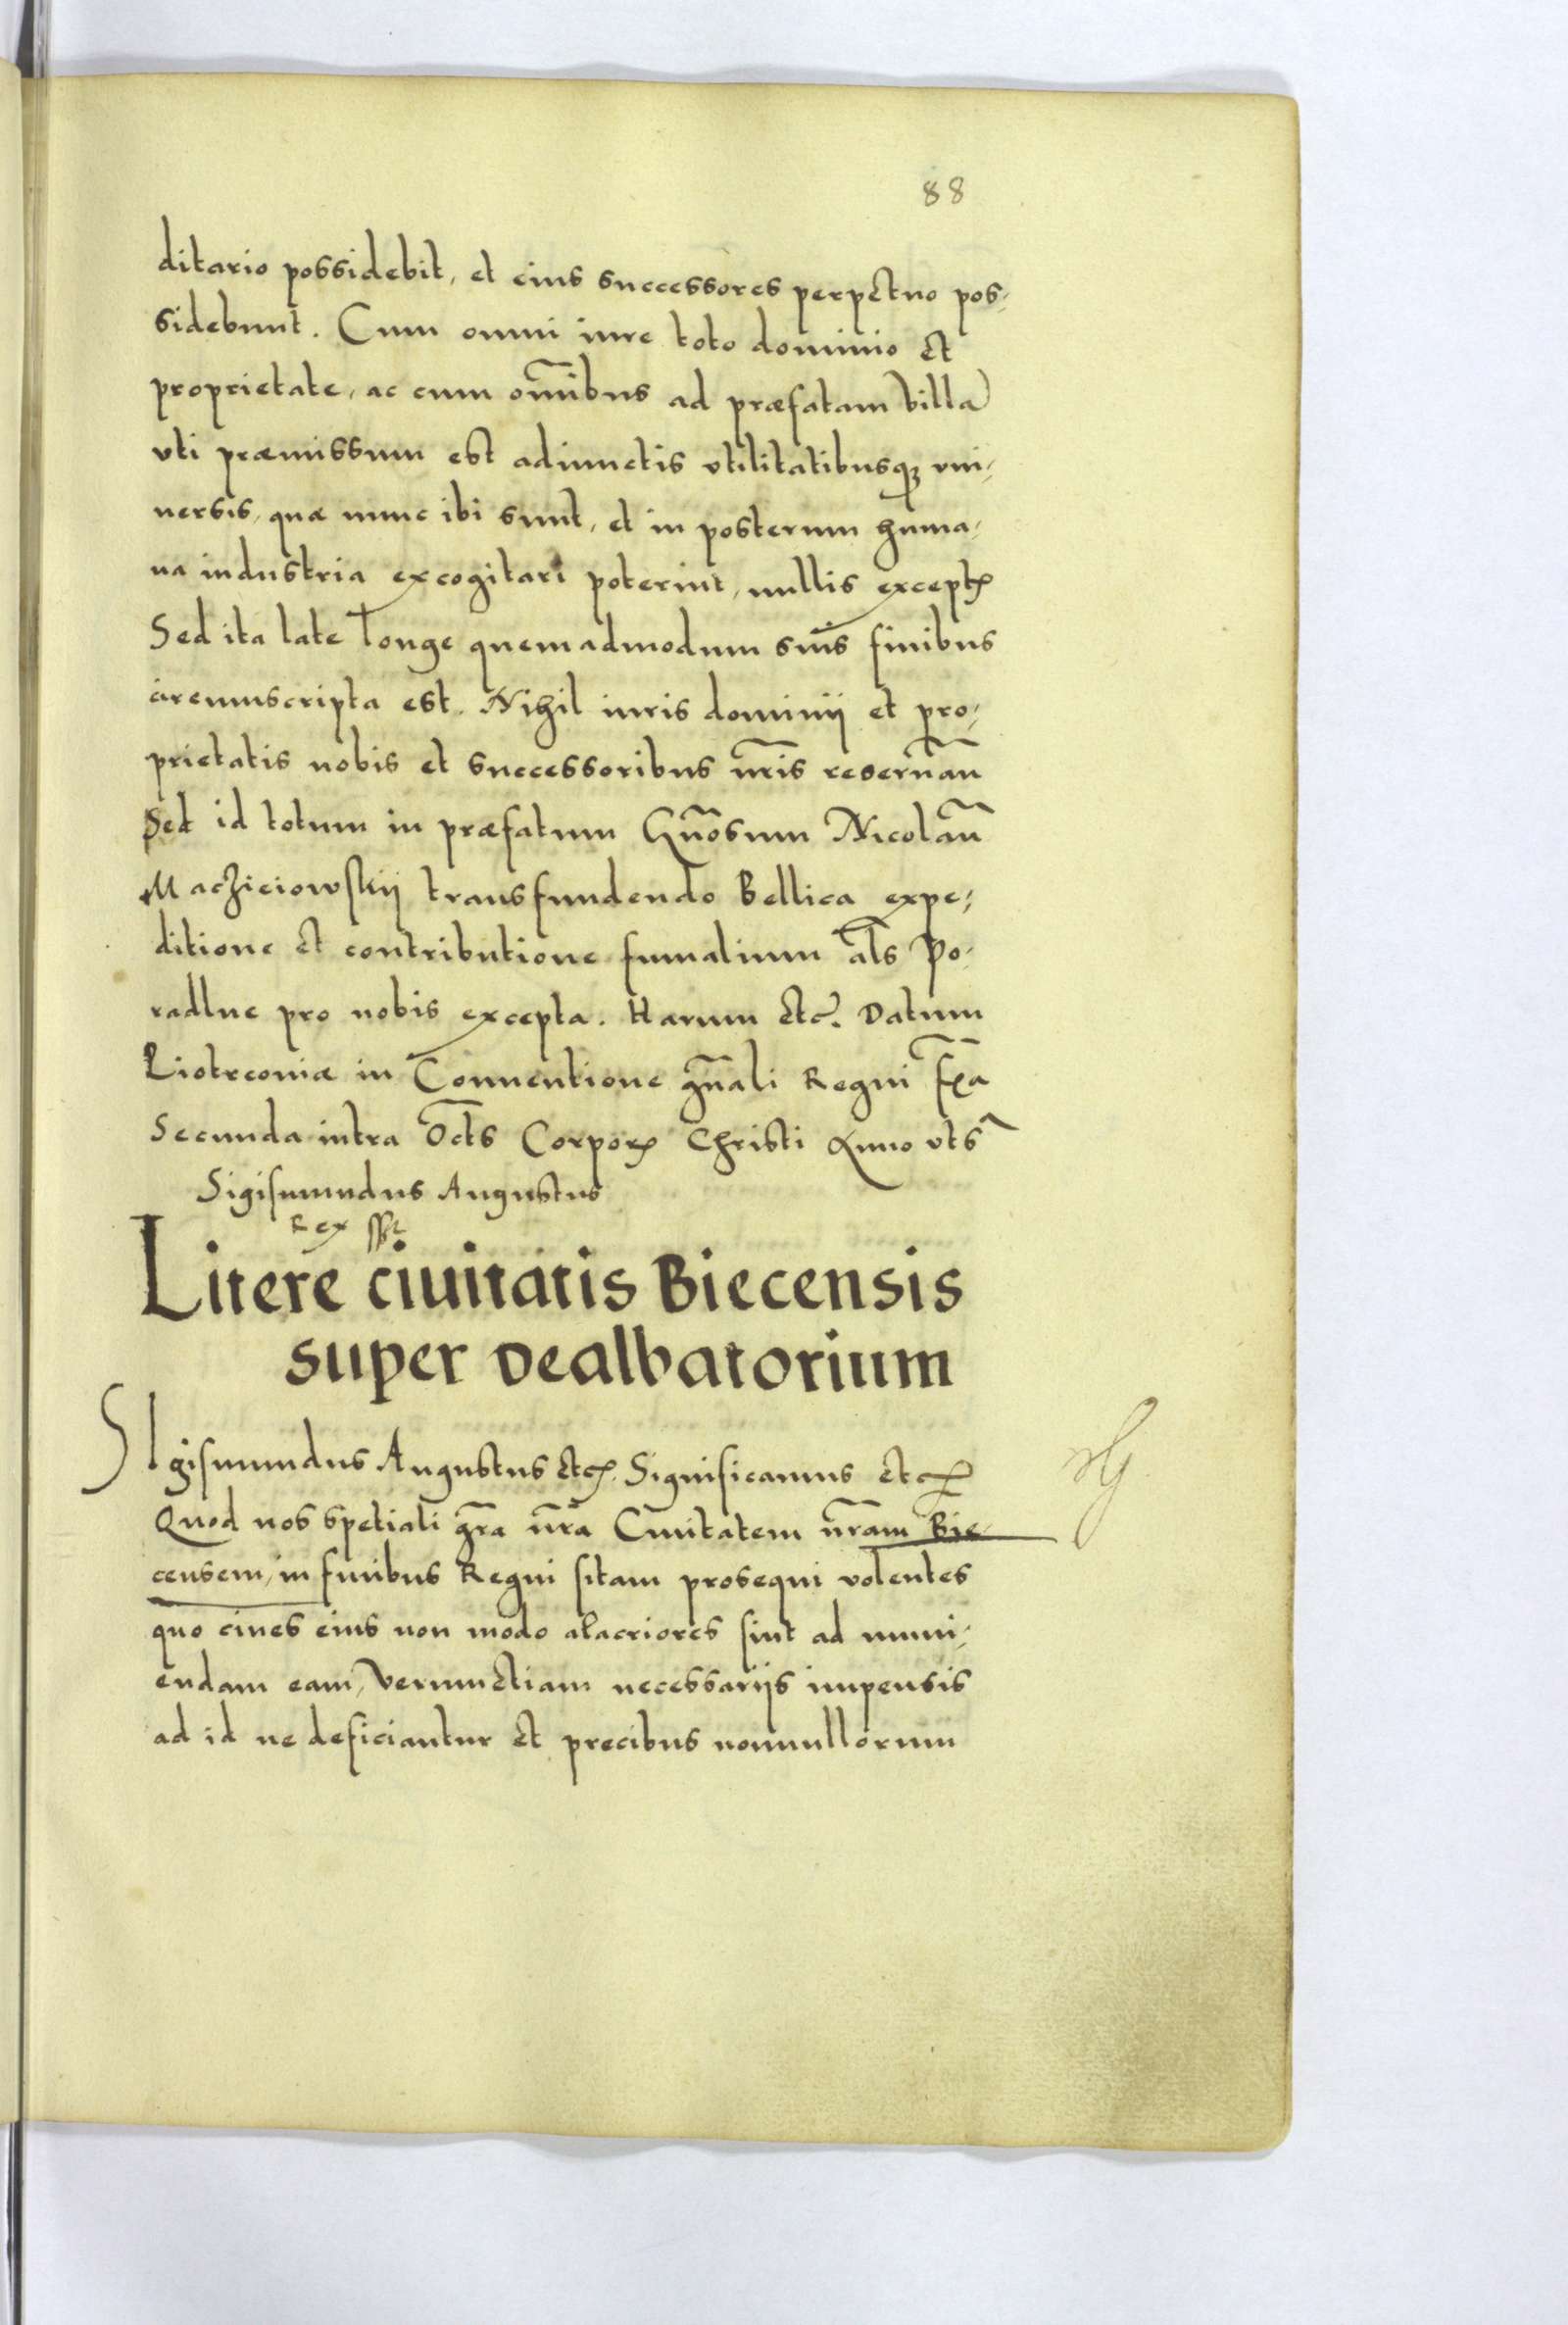 88
ditario possidebit, et eius successores perpetuo pos-
sidebunt. Cum omni iure toto dominio et
proprietate, ac cum om̃ibus ad præfatam villa
vti præmissum est adiunctis vtilitatibusq; vni-
uersis, quæ nunc ibi sunt, et in posterum huma-
na industria excogitari poterint, nullis except
Sed ita late longe quemadmodum suis finibus
circumscripta est. Nihil iuris dominij et pro-
prietatis nobis et successoribus nr̃is reseruan̄
Sed id totum in præfatum Gn̄osum Nicolaū
Maczieiowskij transfundendo Bellica expe-
ditione et contributione fumalium al̄s Po-
radlne pro nobis excepta. Harum etc. Datum
Piotrconiæ in Conuentione gn̄ali Regni fr̄a
Secunda intra Oct̄s Corpor Christi Anno vts̄
Sigismundus Augustus
Rex sst
Litere ciuitatis Biecensis
super dealbatorium
SIgismundus Augustus etc. Significamus etc
Quod nos spetiali gr̄a nr̄a Ciuitatem nr̄am Bie-
censem, in finibus Regni sitam prosequi volentes
quo ciues eius non modo alacriores sint ad muni-
endam eam, verumetiam necessarijs impensis
ad id ne deficiantur et precibus nonnullorum